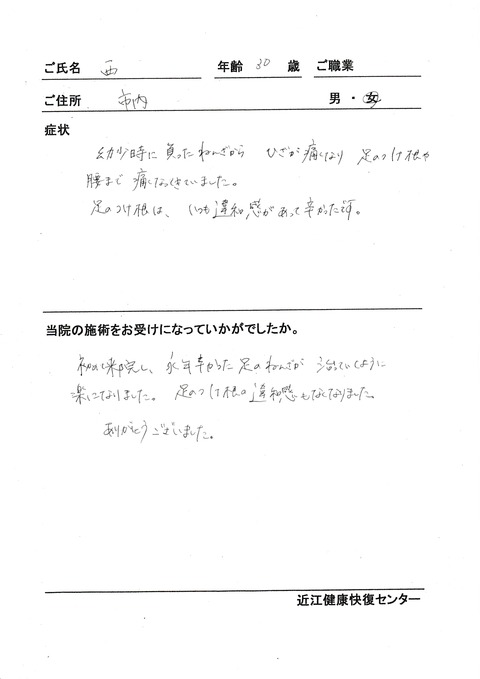 ご氏名 西 年齢 30 歳 ご職業
ご住所 市内 男・女
症状
幼少時に負ったねんざから ひざが痛くなり 足のつけ根や
腰まで痛くなってきていました。
足のつけ根は、いつも違和感があって辛かったです。
当院の施術をお受けになっていかがでしたか。
初めて来院し、永年辛かった足のねんざが 治っていくように
楽になりました。足のつけ根の違和感もなくなりました。
ありがとうございました。
近江健康快復センター